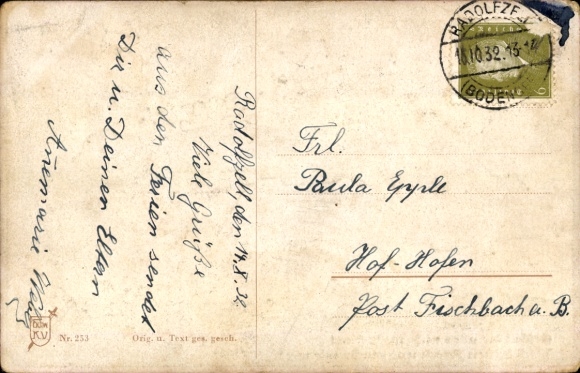 Radolfzell, den 14.8.32
Viele Grüße
aus den Ferien sendet
Dir u. Deinen Eltern
Annemarie
Frl.
Paula Epple
Hof-Hofen
Post Fischbach a. B.
RADOLFZE
.10.32.
(BODEN
6
Nr. 253
Orig. u. Text ges. gesch.